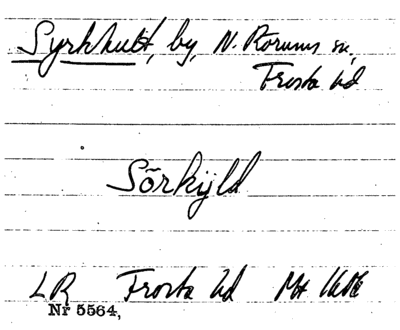 Syrkhult, by, N. Rörums sn,
Frosta hd
Sörkijld
LR Frosta hd
Nr 5564,